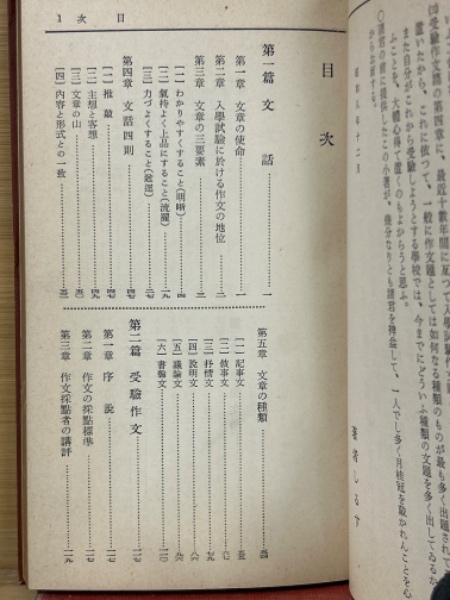 (四)受驗作文篇の第四章に、最近十數年間に亙つて入學試驗作文題
置いたから、これに依つて、一般に作文題としては如何なる種類のものが最も多く出題されて
また自分がこれから受驗しようとする學校では、今までにどういふ種類の文題を多く出してゐるか
ふことを、大體心得て置くのもよからうと思ふ。
〇諸君の前に提供したこの小著が、幾分なりとも諸君を裨益して、一人でも多く月桂冠を取かれんことを心
からお祈する。
昭和八年十二月
著者しるす
目次 1
目次
第一篇 文話 一
第一章 文章の使命 一
第二章 入學試驗に於ける作文の地位 二
第三章 文章の三要素 三
〔一〕わかりやすくすること(明晰) 四
〔二〕氣持よく上品にすること(流麗)
〔三〕力づよくすること(遒逕) 二七
第四章 文話四則 四七
〔一〕推敲 四七
〔二〕主想と客想 四九
〔三〕文章の山 五〇
〔四〕内容と形式との一致
第五章 文章の種類
〔一〕記事文
〔二〕敍事文 六〇
〔三〕抒情文 七九
〔四〕説明文 八六
〔五〕議論文 九六
〔六〕書翰文 一一〇
第二篇 受驗作文 一一七
第一章 序説 一一七
第二章 作文の採點標準 一一七
第三章 作文採點者の講評 一一九